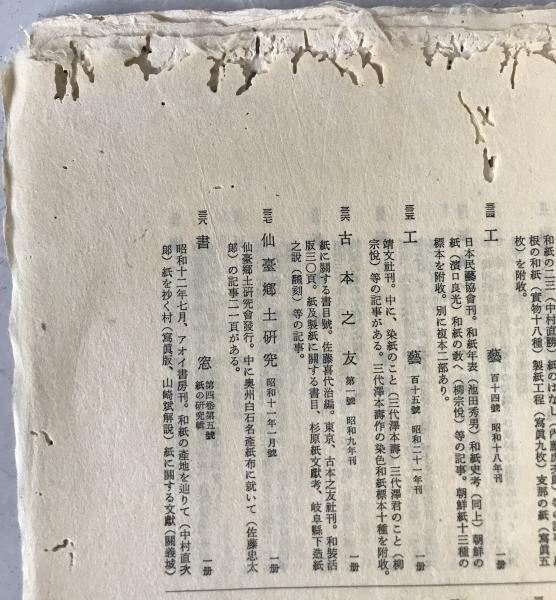 和紙の二三（中村直勝）紙のはな
根の和紙（實物十八種）製紙工程（寫眞九枚）支那の紙（寫眞五
枚）を附收。
工　藝　百十四號　昭和十八年刊　一冊
日本民藝協會刊。和紙年表（池田秀男）和紙史考（同上）朝鮮の
紙（濱口良光）和紙の敎へ（柳宗悅）等の記事。朝鮮紙十三種の
標本を附收。別に複本二部あり。
工　藝　百十五號　昭和二十一年刊　一冊
靖文社刊。中に、染紙のこと（三代澤本壽）三代澤君のこと（柳
宗悅）等の記事がある。三代澤本壽作の染色和紙標本十種を附收。
古本之友　第一號　昭和九年刊　一冊
紙に關する書目號。佐藤喜代治編。東京、古本之友社刊。和裝活
版三〇頁。紙及製紙に關する書目、杉原紙文獻考、岐阜縣下造紙
之說（飜刻）等の記事。
仙臺鄕土硏究　昭和十一年一月號　一冊
仙臺鄕土硏究會發行。中に奧州白石名產紙布に就いて（佐藤忠太
郎）の記事二一頁がある。
書　窓　第四卷第五號　紙の硏究輯　一冊
昭和十二年七月、アオイ書房刊。和紙の產地を辿りて（中村直次
郎）紙を抄く村（寫眞版、山崎斌解說）紙に關する文獻（關義城）